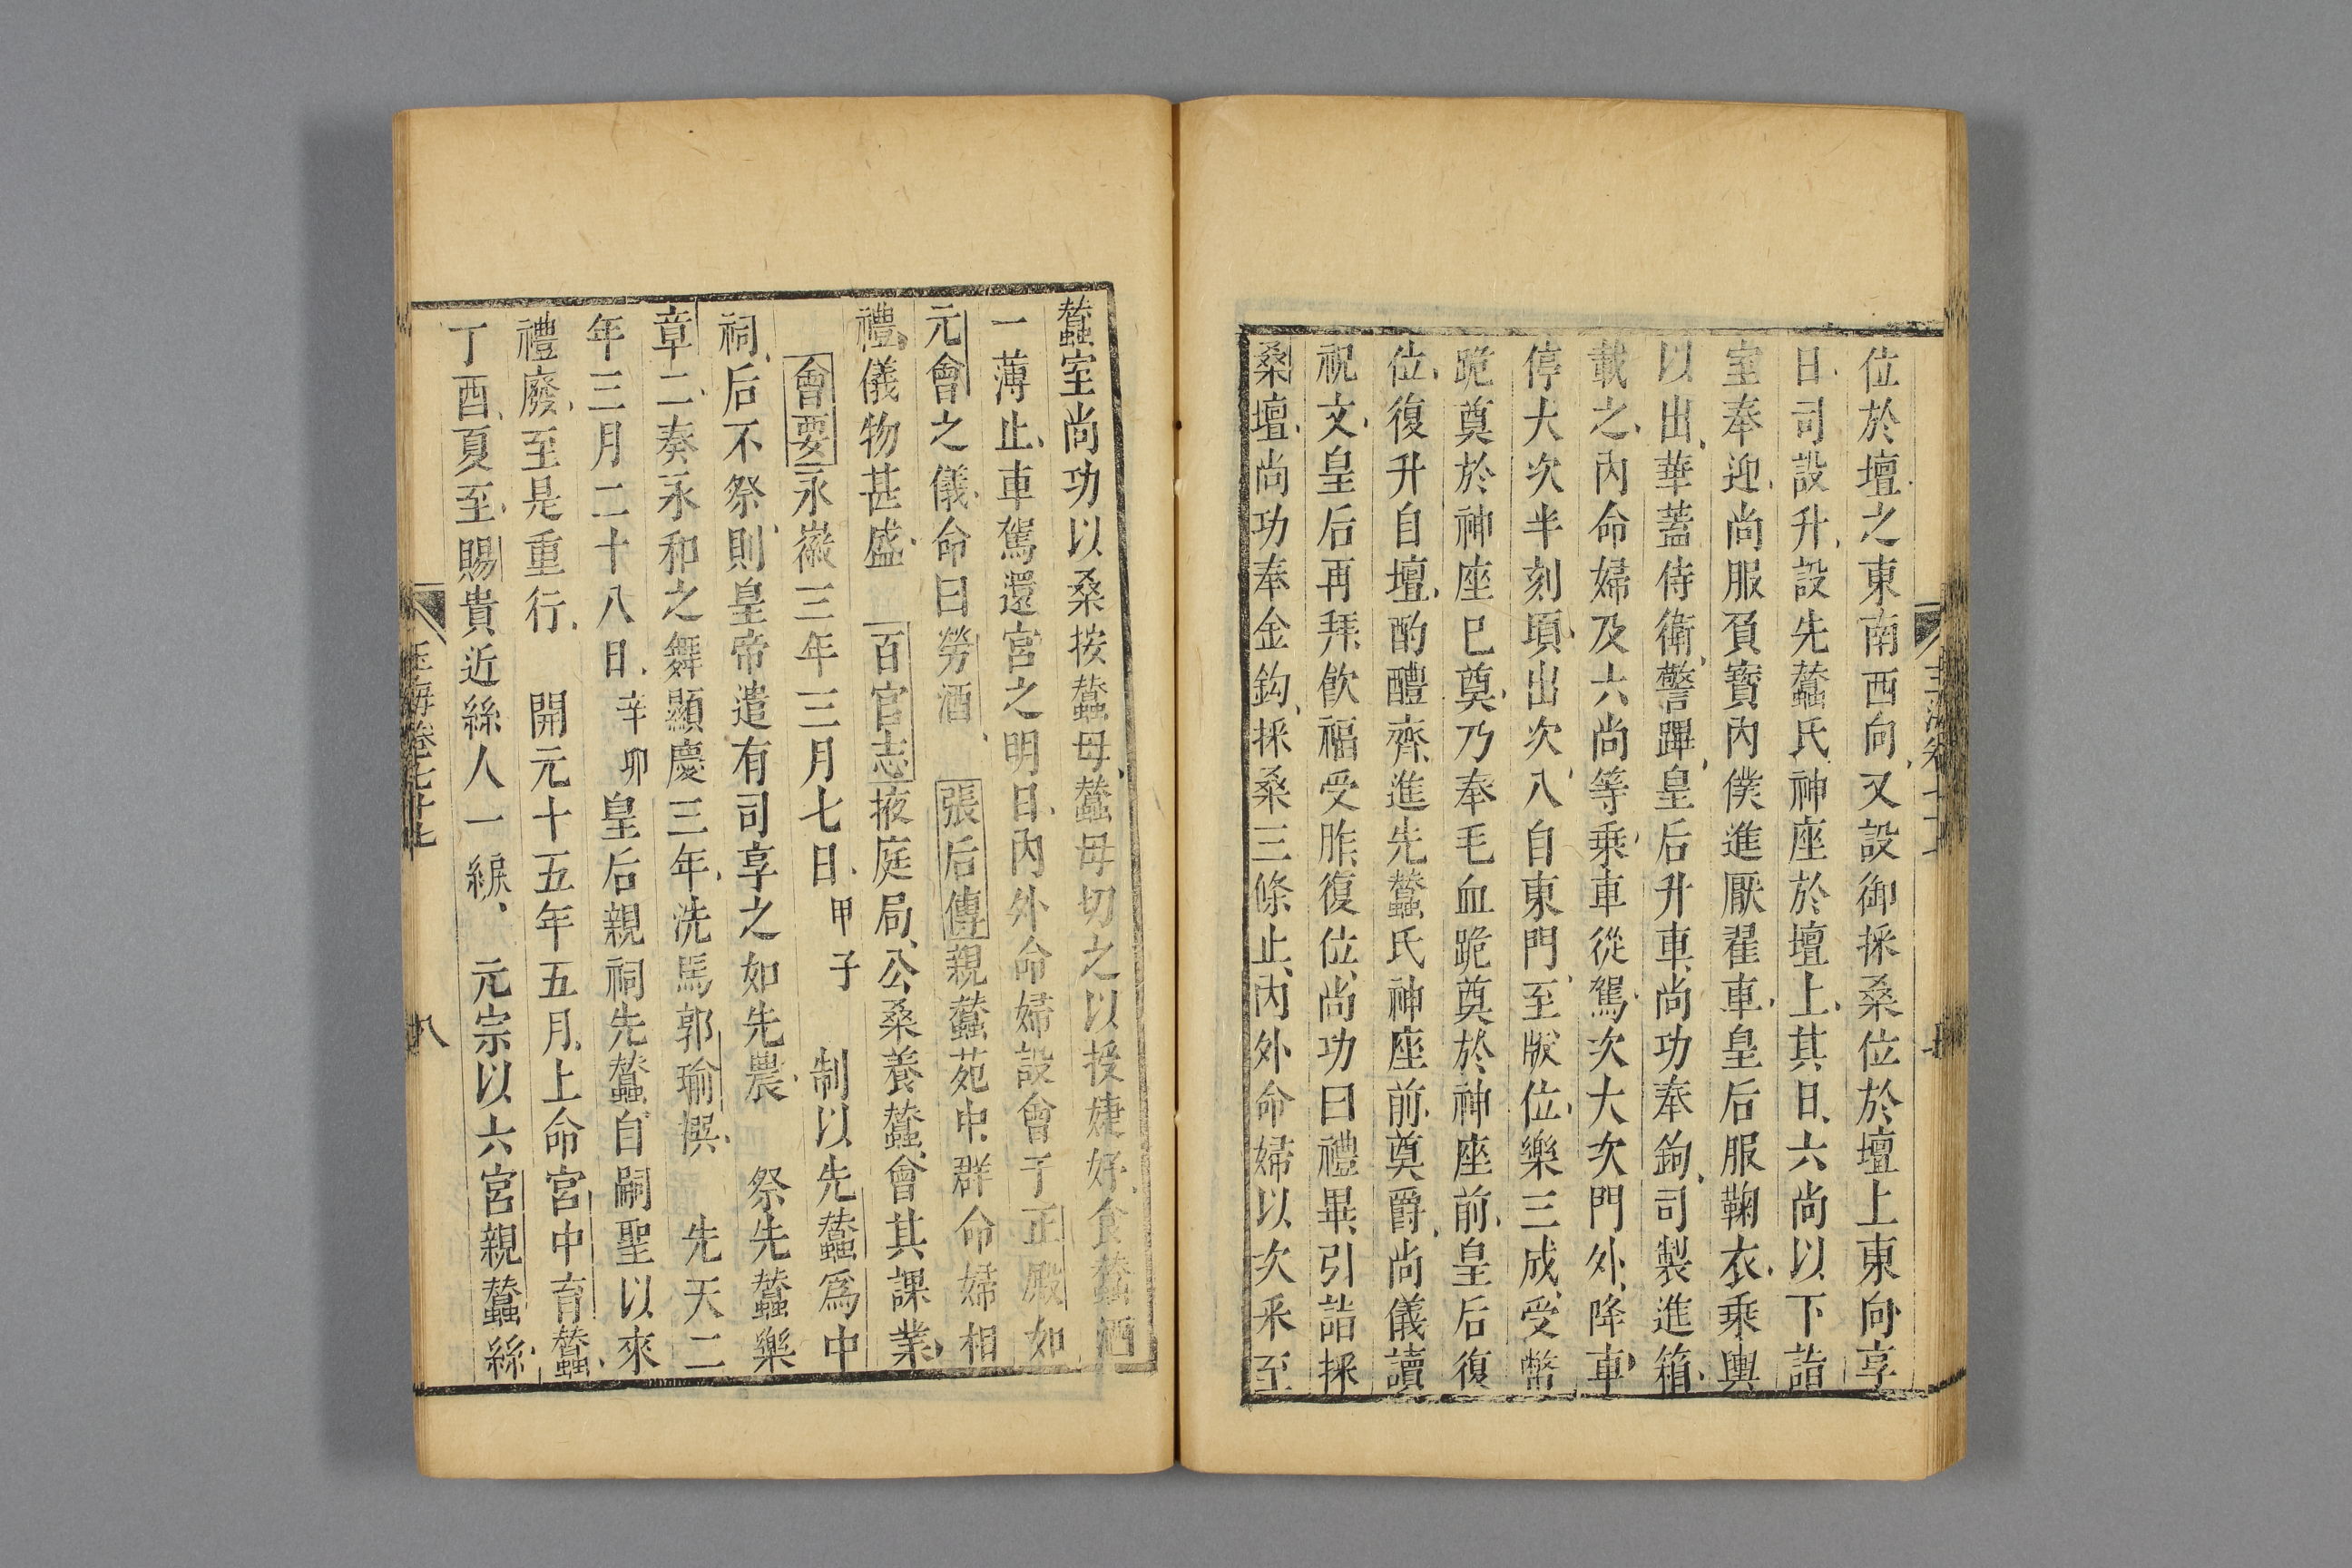 位於壇之東南西向又設御採桑位於壇上東向享
日司設升設先蠶氏神座於壇上其日六尚以下詣
室奉迎尚服負寶內僕進厭翟車皇后服鞠衣乘輿
以出華蓋侍衛警蹕皇后升車尚功奉鉤司製進箱
載之內命婦及六尚等乘車從駕次大次門外降車
停大次半刻頃出次入自東門至版位樂三成受幣
跪奠於神座已奠乃奉毛血跪奠於神座前皇后復
位復升自壇酌醴齊進先蠶氏神座前奠爵尚儀讀
祝文皇后再拜飲福受胙復位尚功曰禮畢引詣採
桑壇尚功奉金鈎採桑三條止內外命婦以次采至
蠶室尚功以桑授蠶母蠶母切之以授婕妤食蠶洒
一薄止車駕還宮之明日內外命婦設會于正殿如
元會之儀命曰勞酒 張后傳親蠶苑中群命婦相
禮儀物甚盛 百官志掖庭局公桑養蠶會其課業
會要永徽三年三月七日甲子 制以先蠶爲中
祠后不祭則皇帝遣有司享之如先農 祭先蠶樂
章二奏永和之舞顯慶三年洗馬郭瑜撰 先天二
年三月二十八日辛卯皇后親祠先蠶自嗣聖以來
禮廢至是重行 開元十五年五月上命宮中育蠶
丁酉夏至賜貴近絲人一綟 元宗以六宮親蠶絲
玉海卷七十七 八